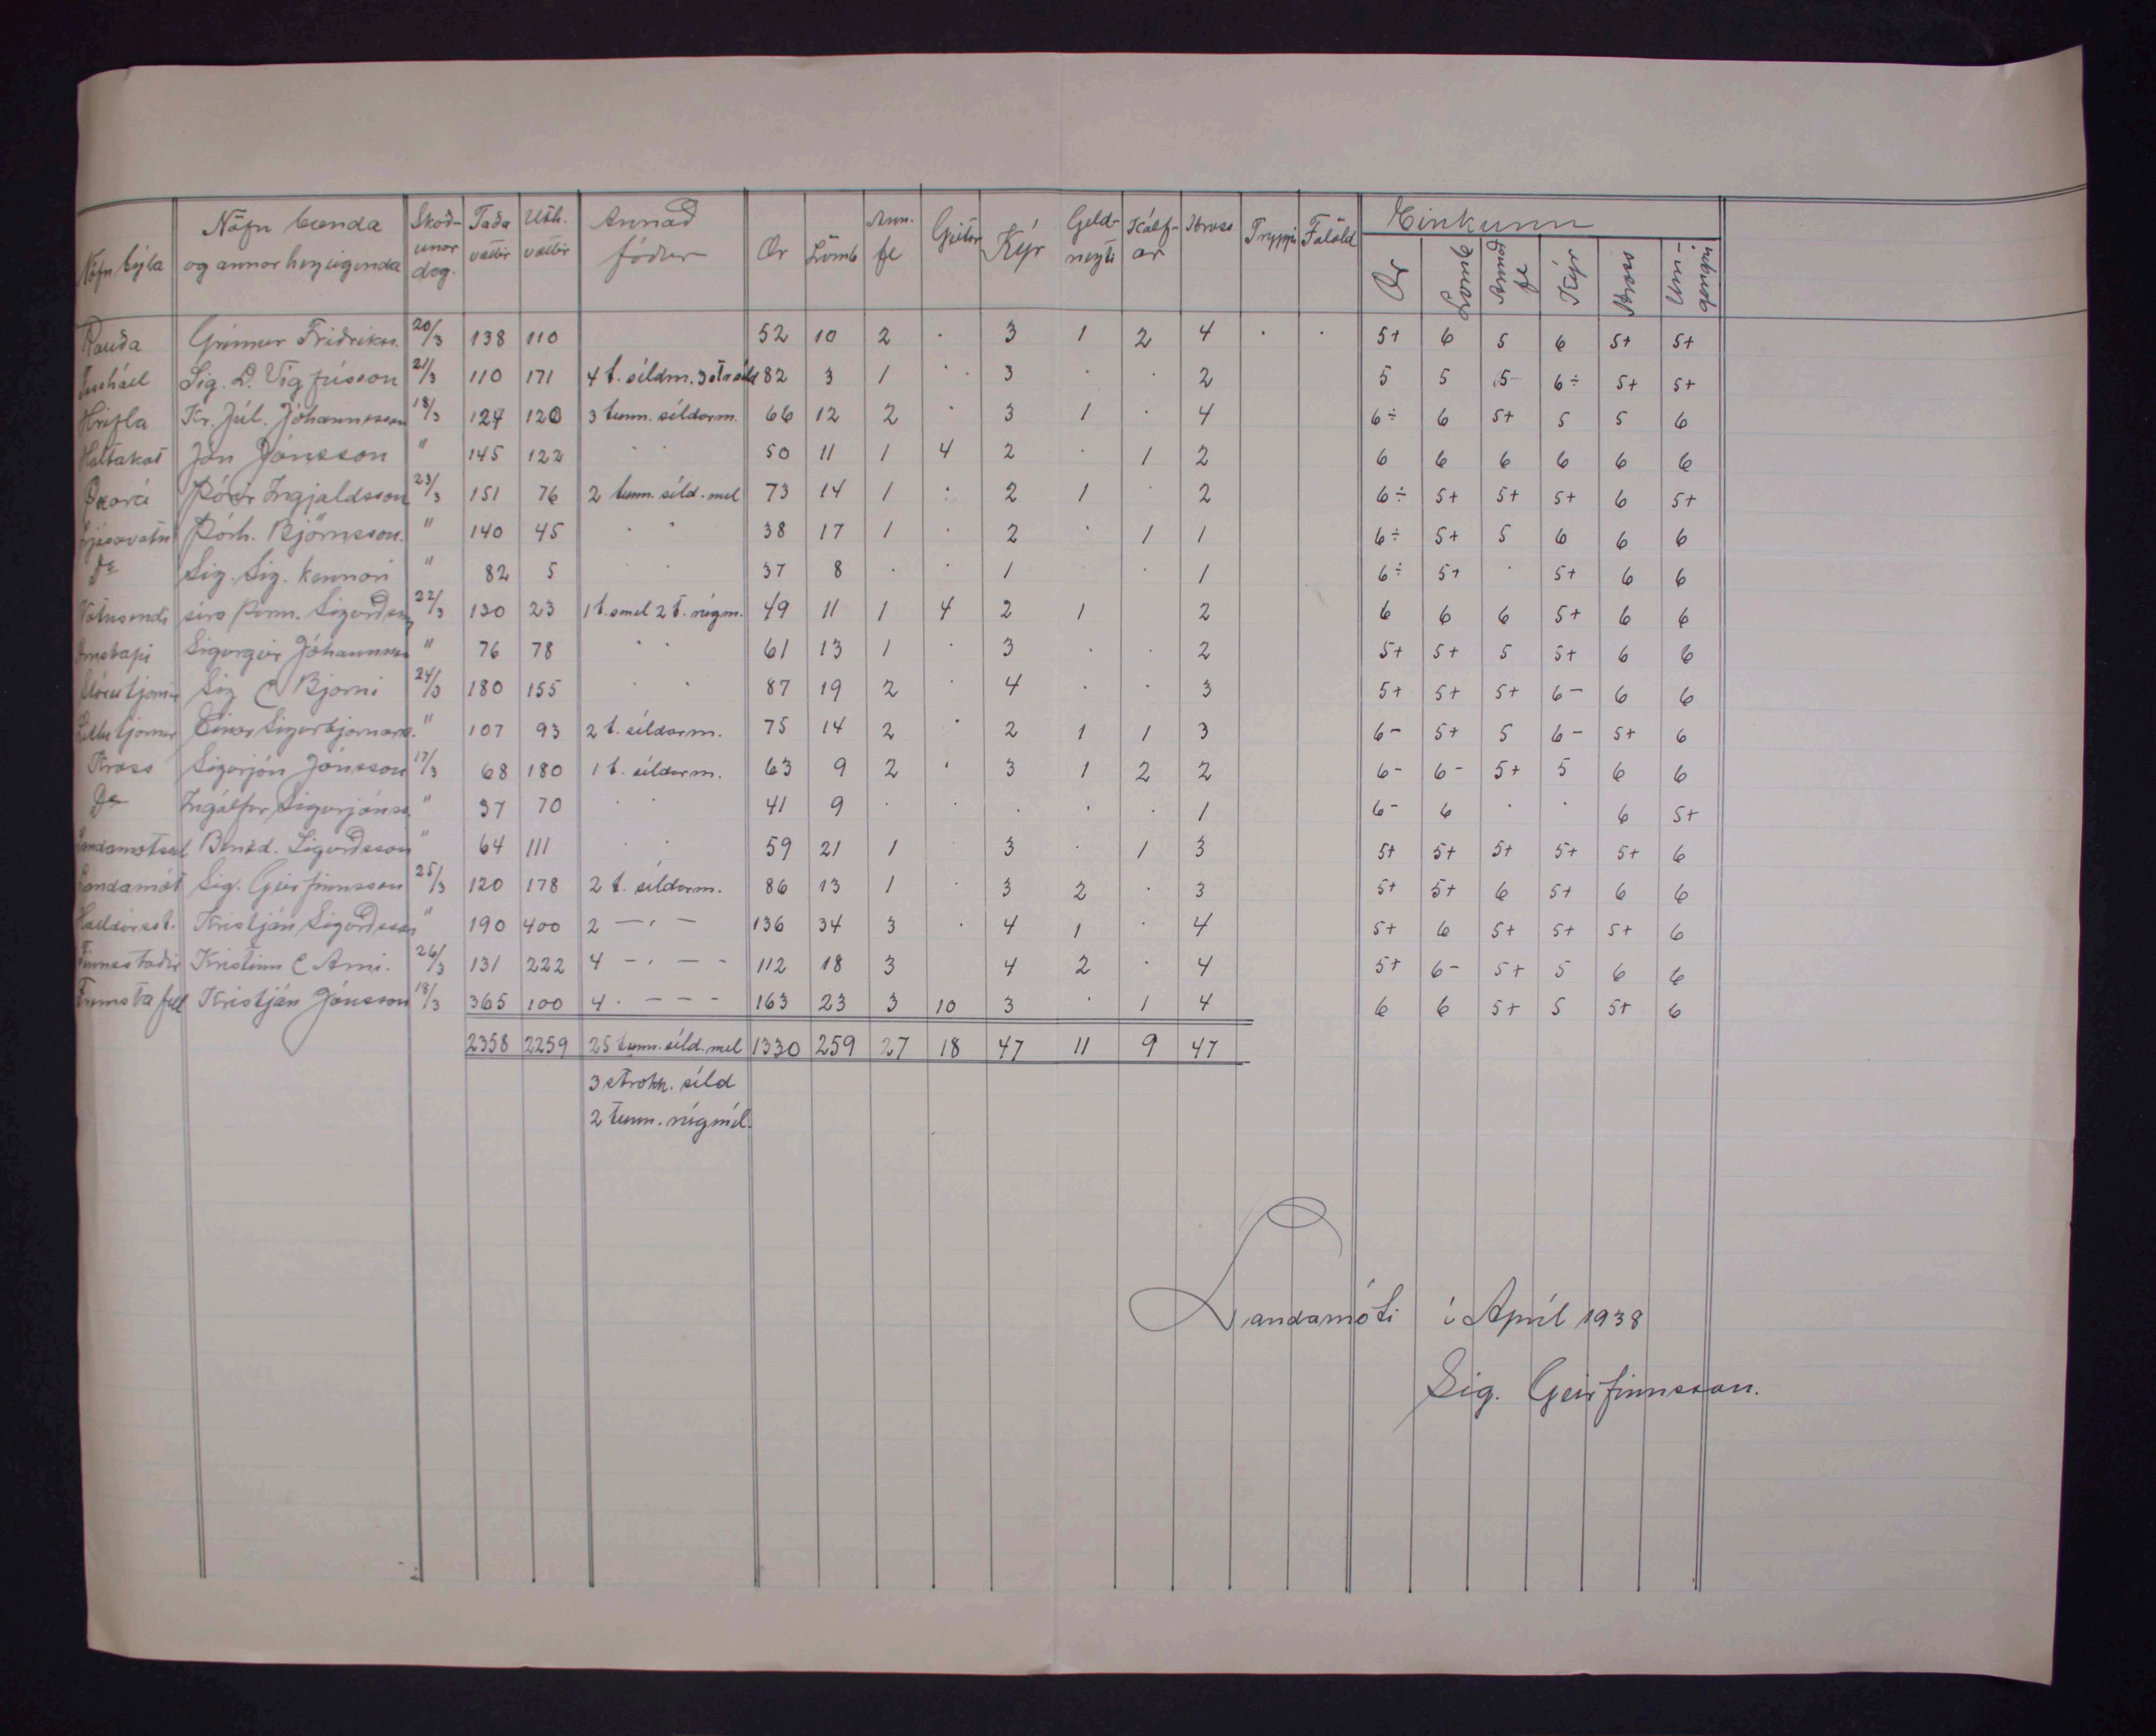 Nöfn býla | Nöfn bænda og annar heyeigenda | Skoð-unar dag. | Taða vættir | Úth. vættir | Annað fóður | Ær | Lömb | Ann. fé | Geitur | Kýr | Geld-neyti | Kálf-ar | Hross | Tryppi | Folöld | Einkunn: Ær | Lömb | Annað fé | Kýr | Hross | Um-gengni
Rauðá | Grímur Friðrikss. | 20/3 | 138 | 110 | | 52 | 10 | 2 | · | 3 | 1 | 2 | 4 | · | · | 5+ | 6 | 5 | 6 | 5+ | 5+
Fossháll | Sig. L. Vigfússon | 21/3 | 110 | 171 | 4 t. síldm. 3 str síld | 82 | 3 | 1 | · | 3 | · | · | 2 | | | 5 | 5 | 5 | 6÷ | 5+ | 5+
Hrifla | Kr. Júl. Jóhannesson | 18/3 | 124 | 120 | 3 tunn. síldarm. | 66 | 12 | 2 | · | 3 | 1 | · | 4 | | | 6÷ | 6 | 5+ | 5 | 5 | 6
Holtakot | Jón Jónsson | " | 145 | 122 | · · | 50 | 11 | 1 | 4 | 2 | · | 1 | 2 | | | 6 | 6 | 6 | 6 | 6 | 6
Öxará | Þórir Ingjaldsson | 23/3 | 151 | 76 | 2 tunn. síld. mél | 73 | 14 | 1 | · | 2 | 1 | · | 2 | | | 6÷ | 5+ | 5+ | 5+ | 6 | 5+
Ljósavatn | Þórh. Björnsson. | " | 140 | 45 | · · | 38 | 17 | 1 | · | 2 | · | 1 | 1 | | | 6÷ | 5+ | 5 | 6 | 6 | 6
Do | Sig. Sig. kennari | " | 82 | 5 | · · | 37 | 8 | · | · | 1 | · | · | 1 | | | 6÷ | 5+ | · | 5+ | 6 | 6
Vatnsendi | séra Þorm. Sigurðsson | 22/3 | 130 | 23 | 1 t. smél 2 t. rúgm. | 49 | 11 | 1 | 4 | 2 | 1 | | 2 | | | 6 | 6 | 6 | 5+ | 6 | 6
Arnstapi | Sigurgeir Jóhannsson | " | 76 | 78 | · · | 61 | 13 | 1 | · | 3 | · | · | 2 | | | 5+ | 5+ | 5 | 5+ | 6 | 6
Stórutjarnir | Sig & Bjarni | 24/3 | 180 | 155 | · · | 87 | 19 | 2 | · | 4 | · | · | 3 | | | 5+ | 5+ | 5+ | 6- | 6 | 6
Litlutjarnir | Einar Sigurbjarnars. | " | 107 | 93 | 2 t. síldarm. | 75 | 14 | 2 | · | 2 | 1 | 1 | 3 | | | 6- | 5+ | 5 | 6- | 5+ | 6
Kross | Sigurjón Jónsson | 17/3 | 68 | 180 | 1 t. síldarm. | 63 | 9 | 2 | · | 3 | 1 | 2 | 2 | | | 6- | 6- | 5+ | 5 | 6 | 6
Do | Ingólfur Sigurjónss. | " | 37 | 70 | · · | 41 | 9 | · | · | · | · | · | 1 | | | 6- | 6 | · | · | 6 | 5+
Landamótssel | Bened. Sigurðsson | " | 64 | 111 | · · | 59 | 21 | 1 | | 3 | · | 1 | 3 | | | 5+ | 5+ | 5+ | 5+ | 5+ | 6
Landamót | Sig. Geirfinnsson | 25/3 | 120 | 178 | 2 t. síldarm. | 86 | 13 | 1 | · | 3 | 2 | · | 3 | | | 5+ | 5+ | 6 | 5+ | 6 | 6
Halldórsst. | Kristján Sigurðsson | " | 190 | 400 | 2 — · — | 136 | 34 | 3 | · | 4 | 1 | · | 4 | | | 5+ | 6 | 5+ | 5+ | 5+ | 6
Finnsstaðir | Kristinn & Árni. | 26/3 | 131 | 222 | 4 - · - - | 112 | 18 | 3 | | 4 | 2 | · | 4 | | | 5+ | 6- | 5+ | 5 | 6 | 6
Finnstafell | Kristján Jónsson | 18/3 | 365 | 100 | 4 · - - - | 163 | 23 | 3 | 10 | 3 | · | 1 | 4 | | | 6 | 6 | 5+ | 5 | 5+ | 6
2358 | 2259 | 25 tunn. síld. mél | 1330 | 259 | 27 | 18 | 47 | 11 | 9 | 47
3 strokk. síld
2 tunn. rúgmél.
Landamóti í Apríl 1938
Sig. Geirfinnsson.